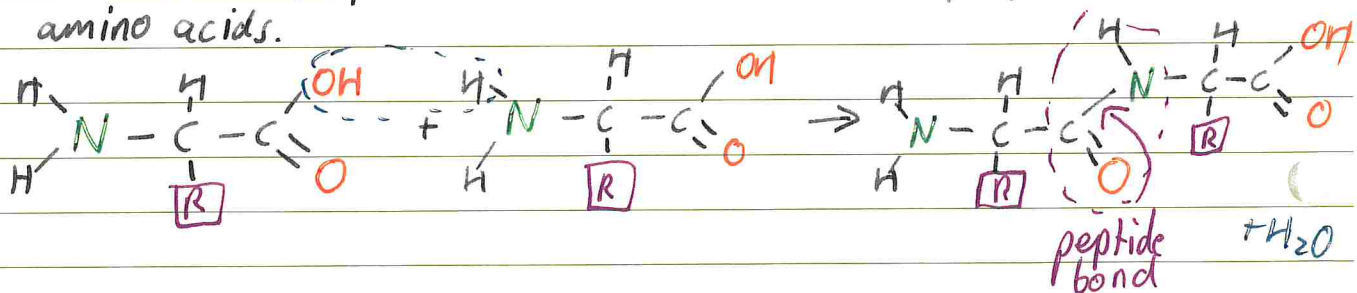 amino acids.
H H OH H H OH H H H H OH
N - C - C + N - C - C → N - C - C N - C - C
H R O H R O H R O R O
peptide
bond
+H₂O